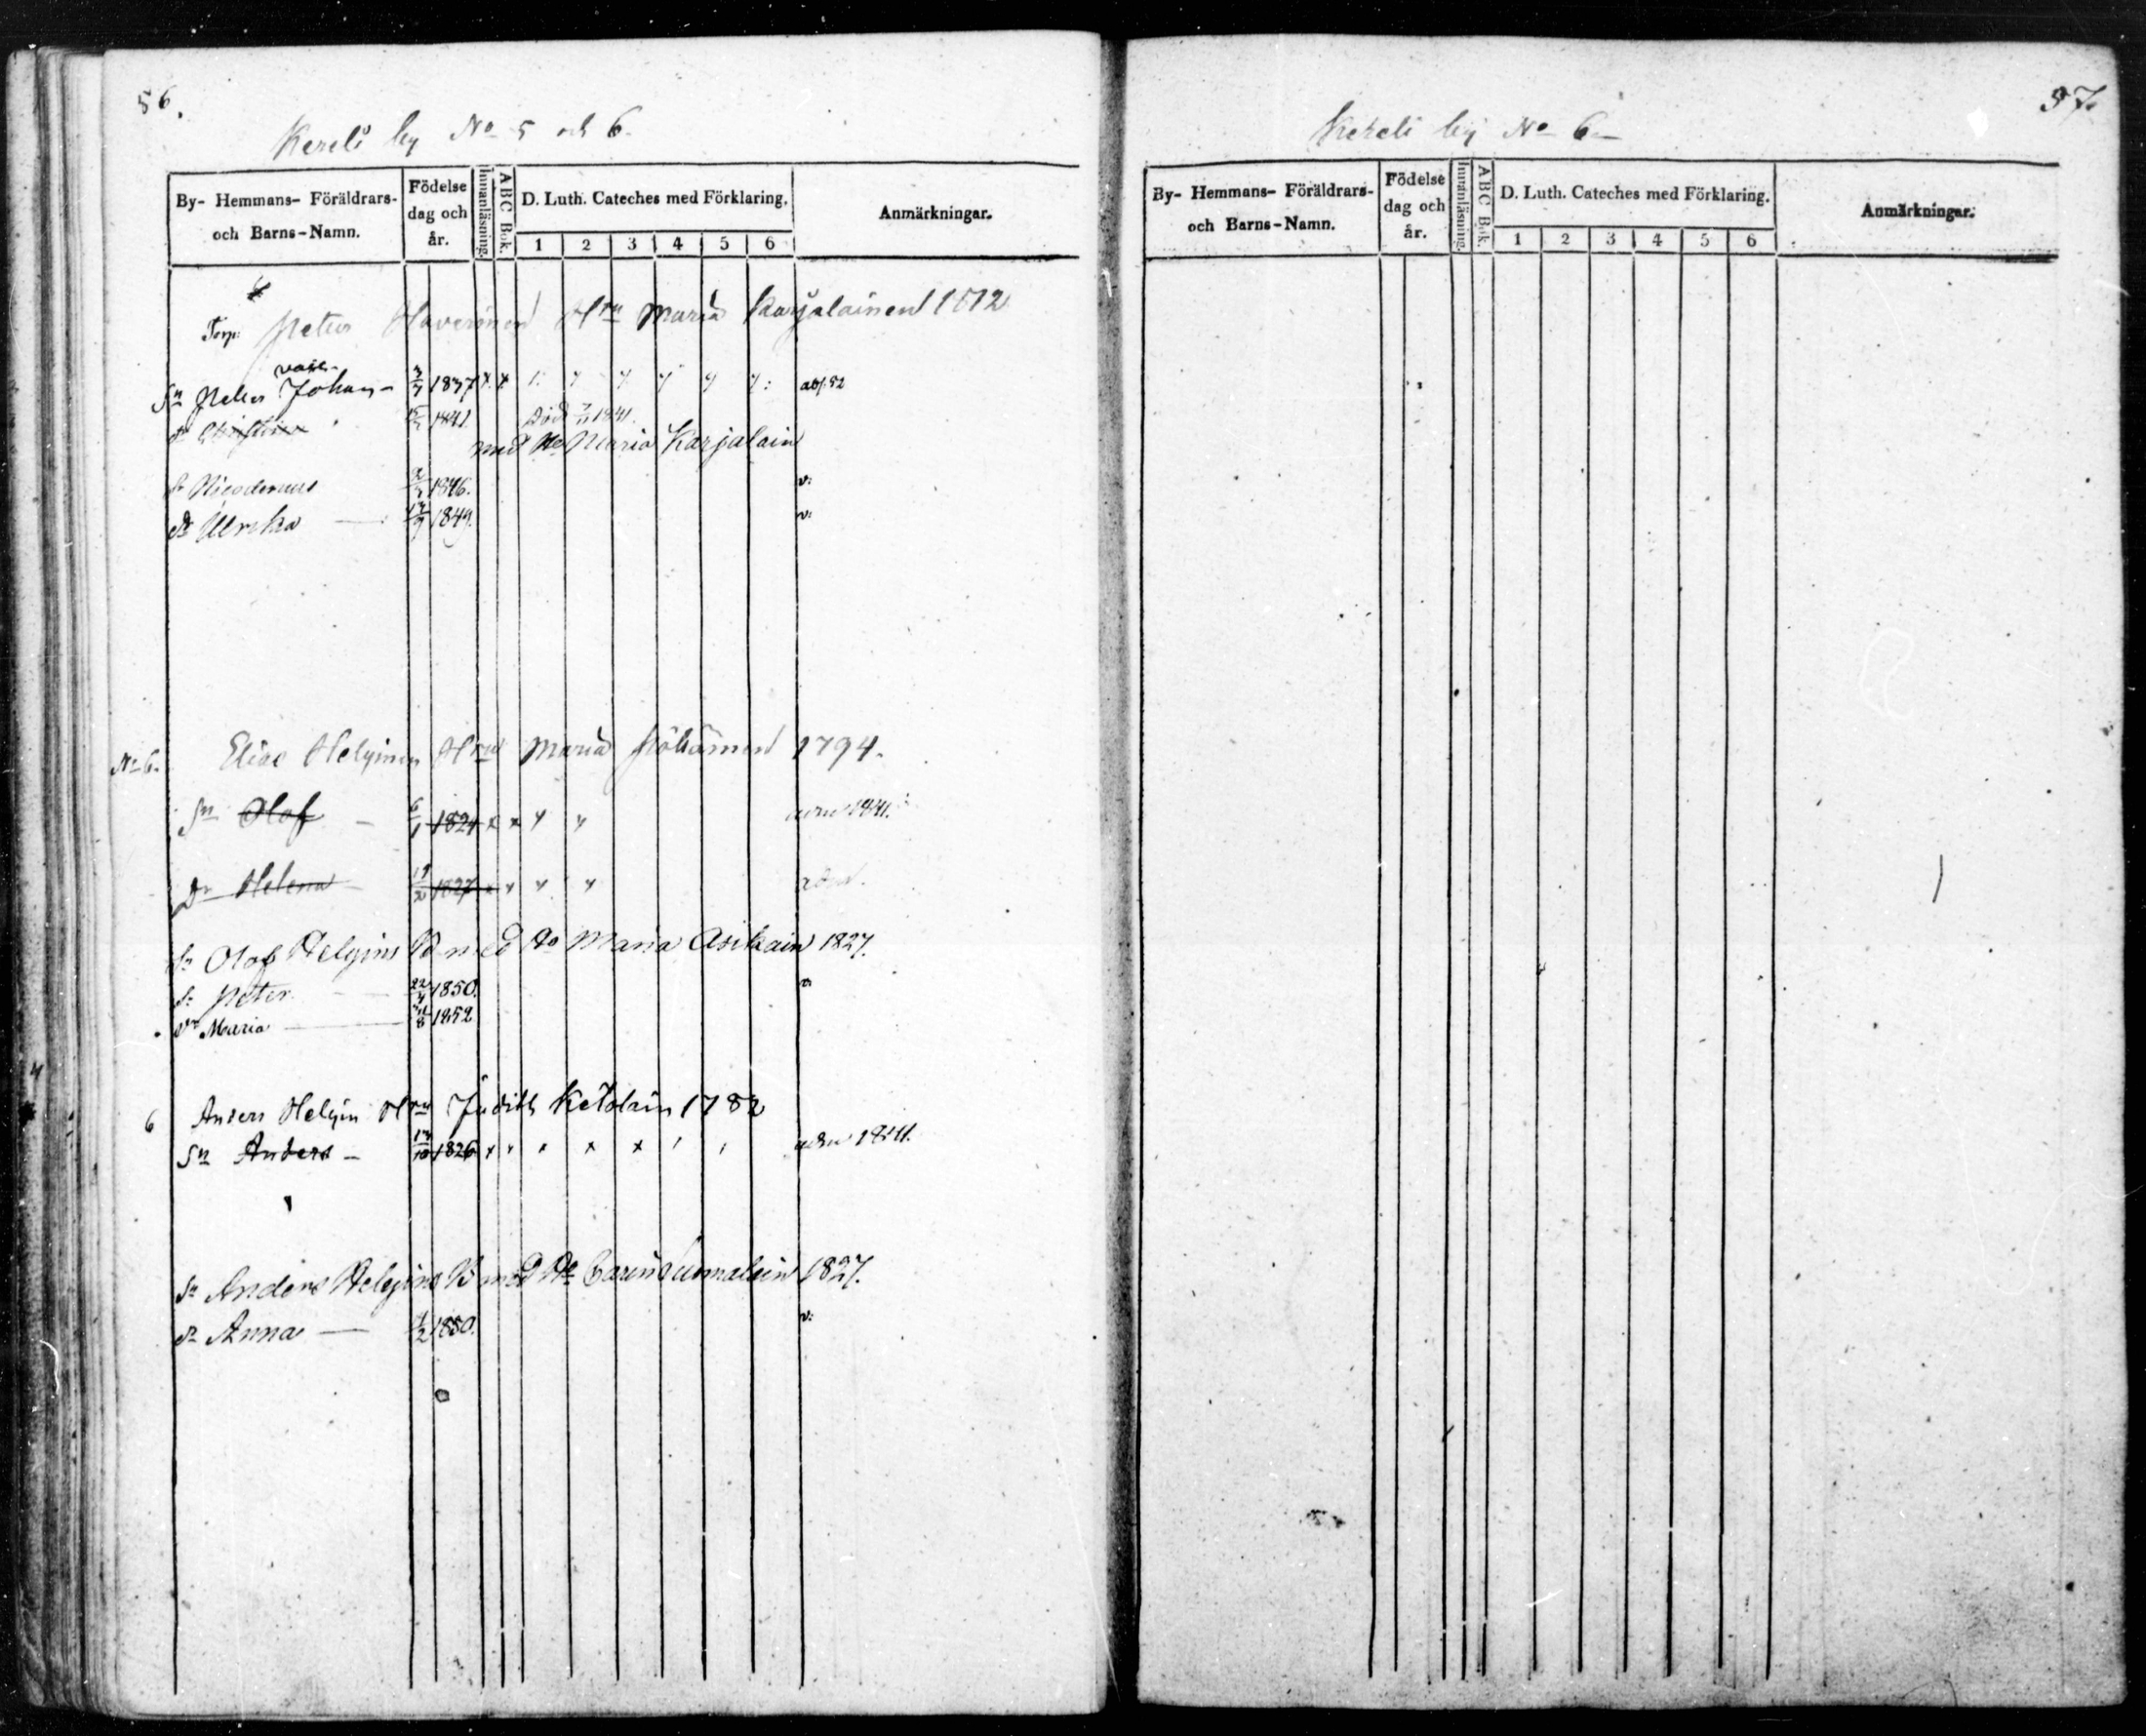 56.
Kereli by No 5 och 6.
By- Hemmans- Föräldrars- och Barns-Namn.
Födelse dag och år.
Innanläsning.
ABC Bok.
D. Luth. Cateches med Förklaring.
1 2 3 4 5 6
Anmärkningar.
Torp: Petter Haverinen Hru Maria Karjalainen 1812
Sn Petter Johan - 3/7 1837 abs. 52
1841 Död 1841.
med Maria Karjalain
Sn Nicodemus 1846. v:
Dr Ulrika 1849. v:
No 6. Elias Helginen Hru Maria 1794.
Sn Olof - 6/1 1824 adm 1841.
Dr Helena 19/2 1827 adm.
Sn Olof Helgins B med Ho Maria Asikain 1827.
Sn Peter 22/4 1850. v.
Dr Maria 1852
6 Anders Helgin Hru Judith Ketolain 1782
Sn Anders - 13/10 1826 adm 1841.
Sn Anders Helgins B med Ho Carin 1827.
Dr Anna 1850. v:
57.
Kereli by No 6
By- Hemmans- Föräldrars- och Barns-Namn.
Födelse dag och år.
Innanläsning.
ABC Bok.
D. Luth. Cateches med Förklaring.
1 2 3 4 5 6
Anmärkningar.